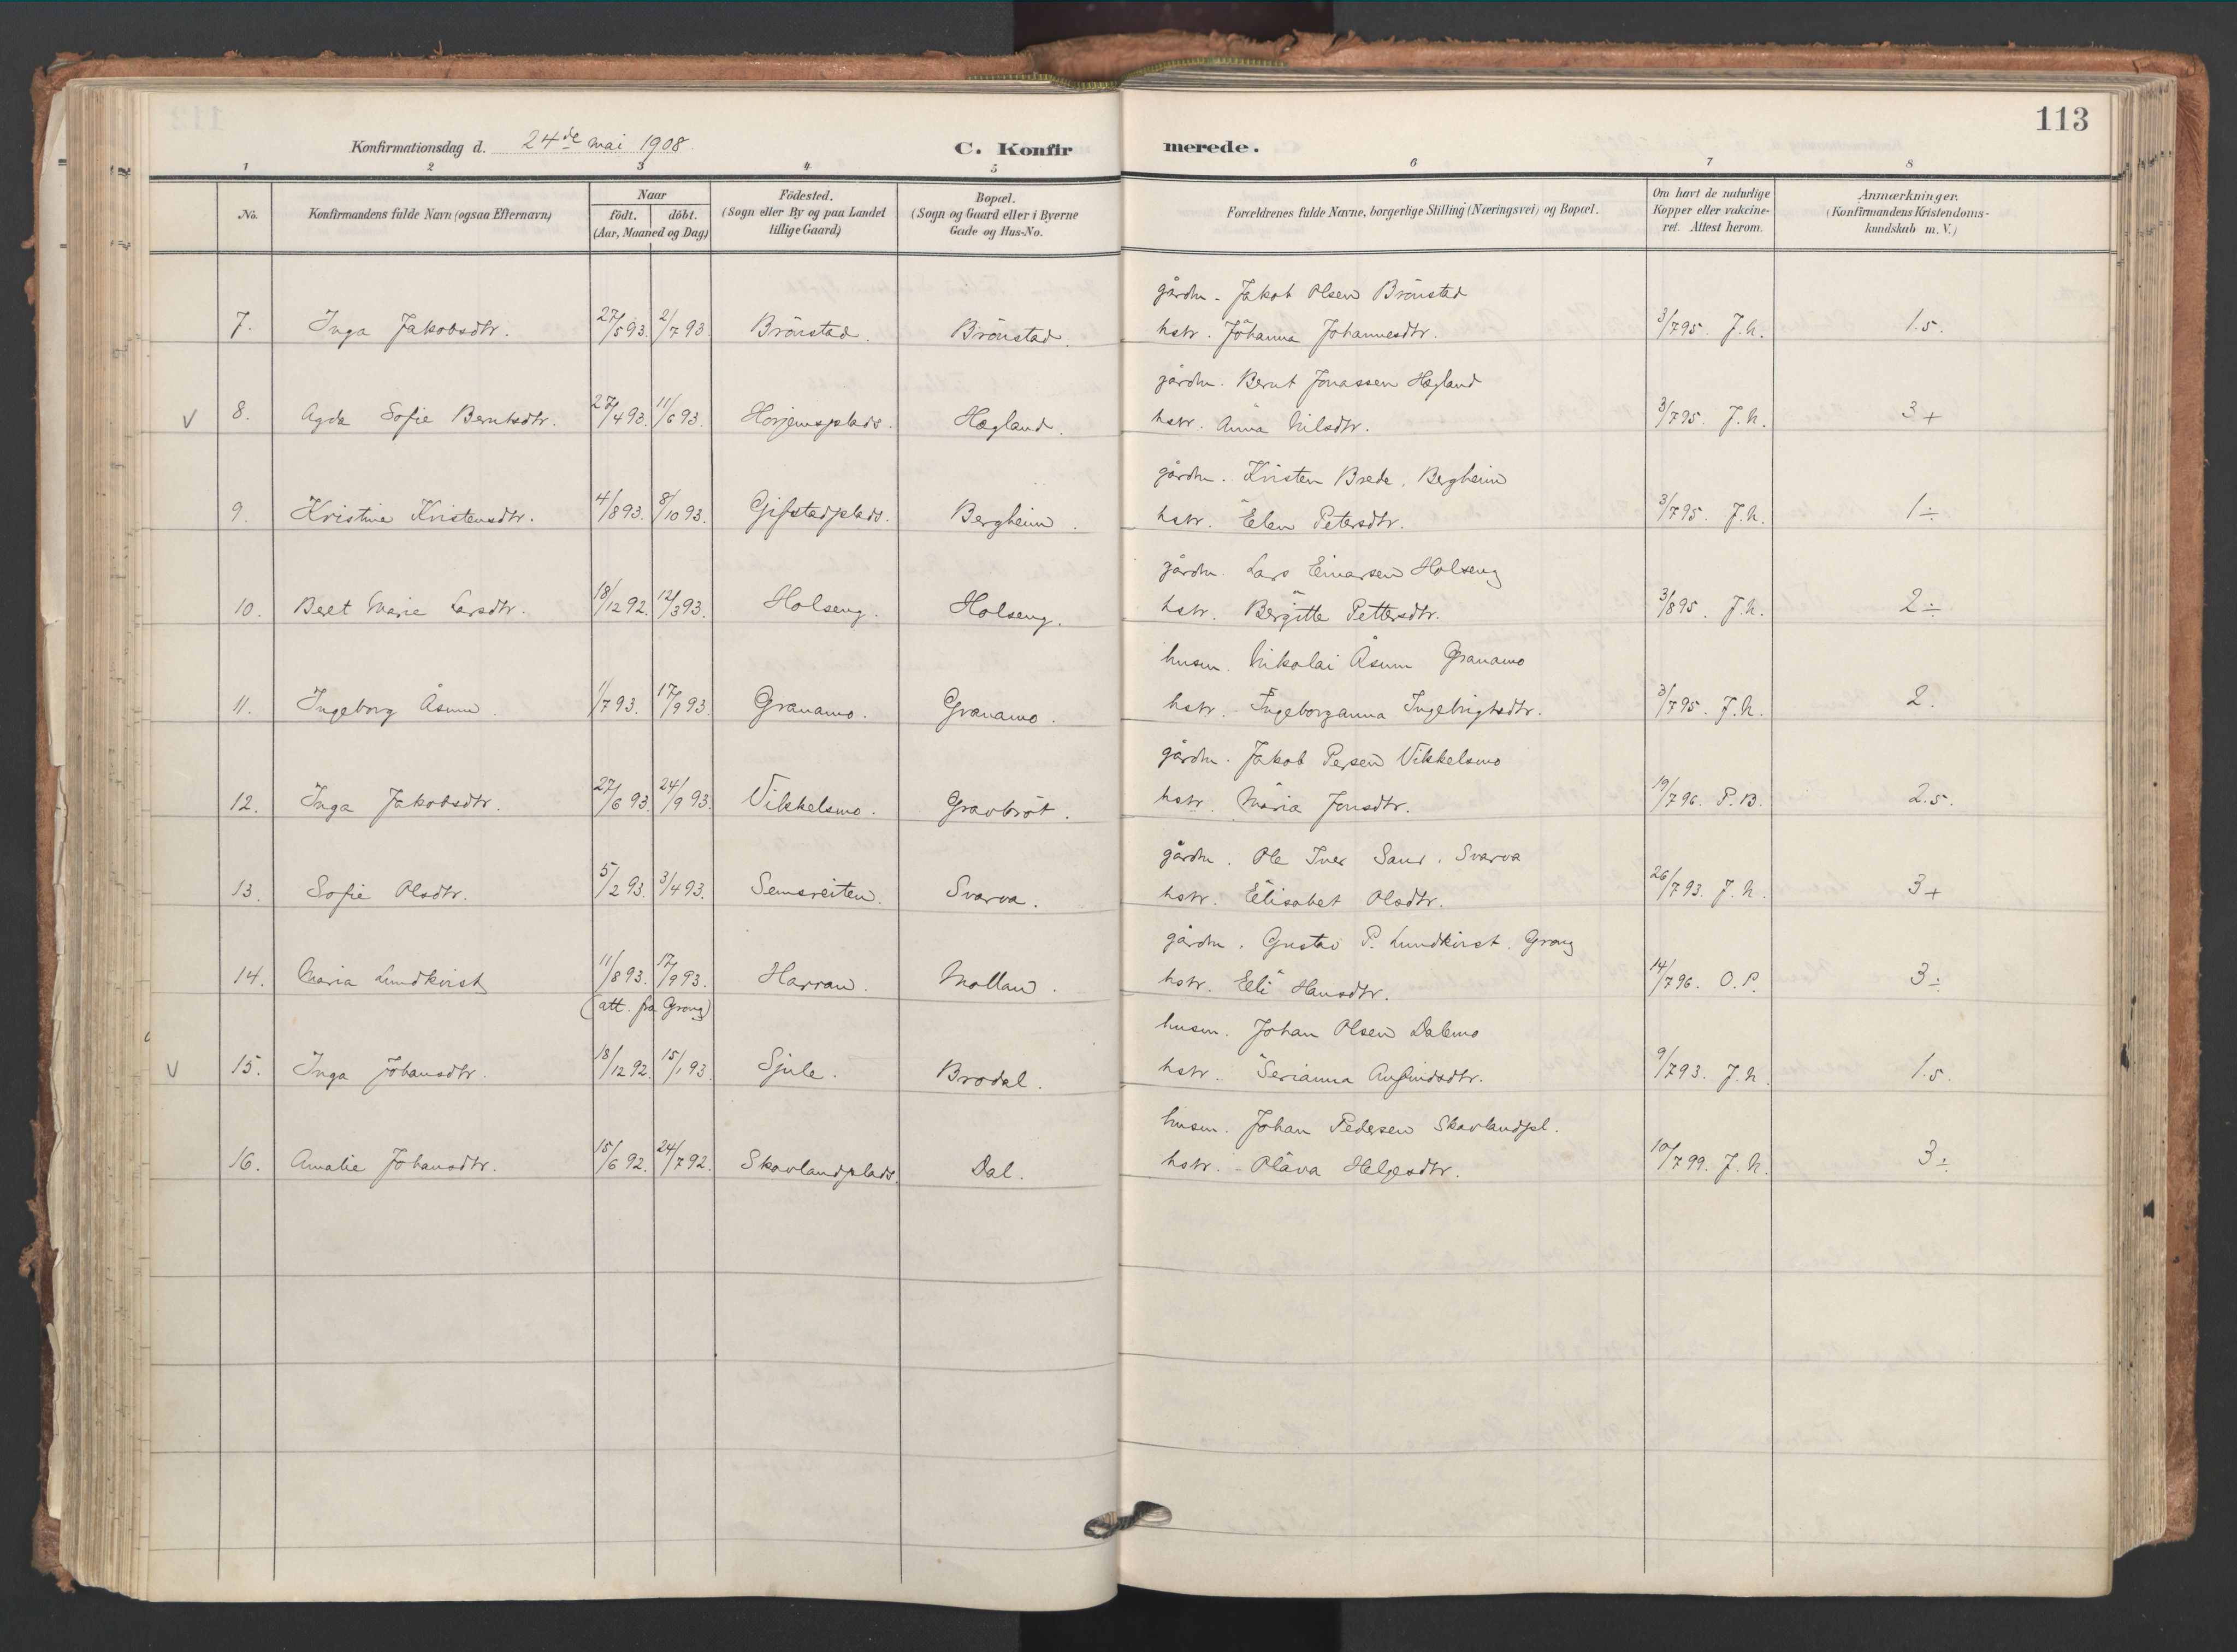 113
Konfirmationsdag d. 24de mai 1908. C. Konfirmerede.
1 2 3 4 5 6 7 8
No. Konfirmandens fulde Navn (ogsaa Efternavn) Naar født. døbt. (Aar, Maaned og Dag) Fødested. (Sogn eller By og paa Landet tillige Gaard) Bopæl. (Sogn og Gaard eller i Byerne Gade og Hus-No. Forældrenes fulde Navne, borgerlige Stilling (Næringsvei) og Bopæl. Om havt de naturlige Kopper eller vakcineret. Attest herom. Anmærkninger. (Konfirmandens Kristendomskundskab m. V.)
gårdm. Jakob Olsen Brönstad
7. Inga Jakobsdtr. 27/5 93. 2/7 93 Brönstad. Brönstad. hstr. Johanna Johannesdtr. 3/7 95. J.N. 1.5.
gårdm. Bernt Jonassen Hægland
V 8. Agda Sofie Berntsdtr. 27/4 93. 11/6 93. Horjemsplads. Hægland. hstr. Anna Nilsdtr. 3/7 95. J.N. 3+
gårdm. Kristen Brede, Bergheim
9. Kristine Kristensdtr. 4/8 93. 8/10 93. Gifstadplads. Bergheim. hstr. Elen Petersdtr. 3/7 95. J.N. 1÷
gårdm. Lars Einarsen Holseng
10. Beret Marie Larsdtr. 18/12 92. 12/3 93. Holseng. Holseng. hstr. Bergitte Pettersdtr. 3/8 95. J.N. 2÷
husm. Nikolai Åsum Granamo
11. Ingeborg Åsum. 1/7 93. 17/9 93. Granamo. Granamo. hstr. Ingeborganna Ingebrigtsdtr. 3/7 95. J.N. 2.
gårdm. Jakob Persen Vikkelsmo
12. Inga Jakobsdtr. 27/6 93. 24/9 93. Vikkelsmo. Gravbröt. hstr. Maria Jonsdtr. 19/7 96. P.B. 2.5.
gårdm. Ole Iver Sand. Svarva
13. Sofie Olsdtr. 5/2 93. 3/4 93. Semsreiten. Svarva. hstr. Elisabet Olsdtr. 26/7 93. J.N. 3+
gårdm. Gustav P. Lundkvist. Grong
14. Maria Lundkvist 11/8 93. 17/9 93. Harran. Mollan. hstr. Eli Hansdtr. 14/7 96. O.P. 3÷
(att. fra Grong)
husm. Johan Olsen Dalemo
V 15. Inga Johansdtr. 18/12 92. 15/1 93. Sjule. Brodal. hstr. Serianna Anfindsdtr. 9/7 93. J.N. 1.5.
husm. Johan Pedersen Skavlandpl.
16. Amalie Johansdtr. 15/6 92. 24/7 92. Skavlandplads. Dal. hstr. Olava Helgesdtr. 10/7 99. J.N. 3÷